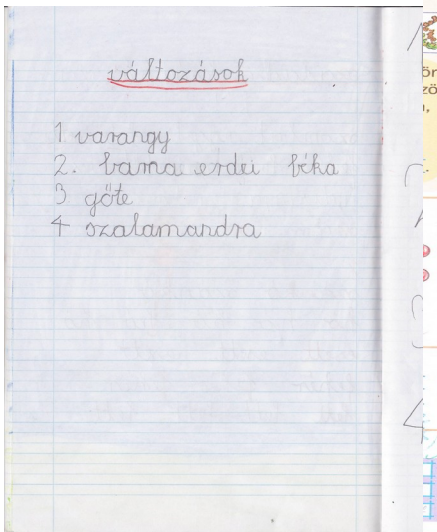 változások
1 varangy
2. barna erdei béka
3 gőte
4 szalamandra